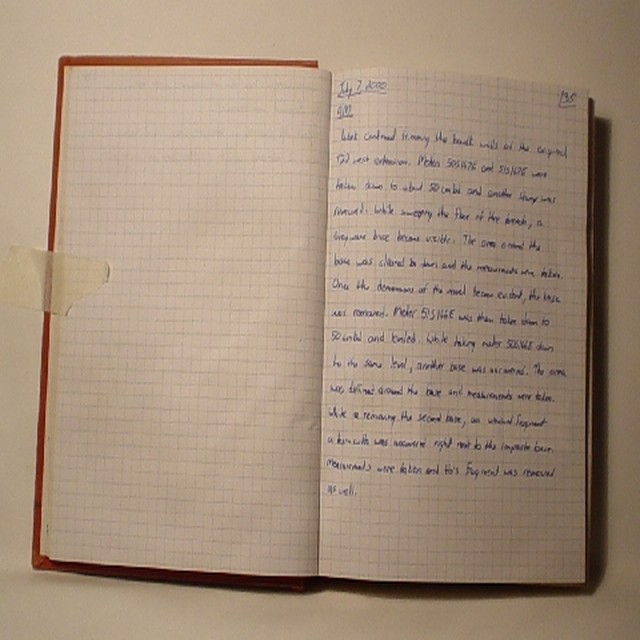 July 7, 2000 135
Work continued removing the baulk walls of the original
west extension. Meters 50S167E and 51S167E were
taken down to about 50 cmbd and another stump was
removed. While sweeping the floor of the trench, a
greyware base became visible. The area around the
base was cleaned to down and the measurements were taken.
Once the dimensions of the vessel became evident, the base
was removed. Meter 51S166E was then taken down to
50 cmbd and leveled. While taking meter 50S166E down
to the same level, another base was uncovered. The area
was defined around the base and measurements were taken.
While removing the second base, an unusual fragment
was uncovered right next to the base.
Measurements were taken and this fragment was removed
as well.